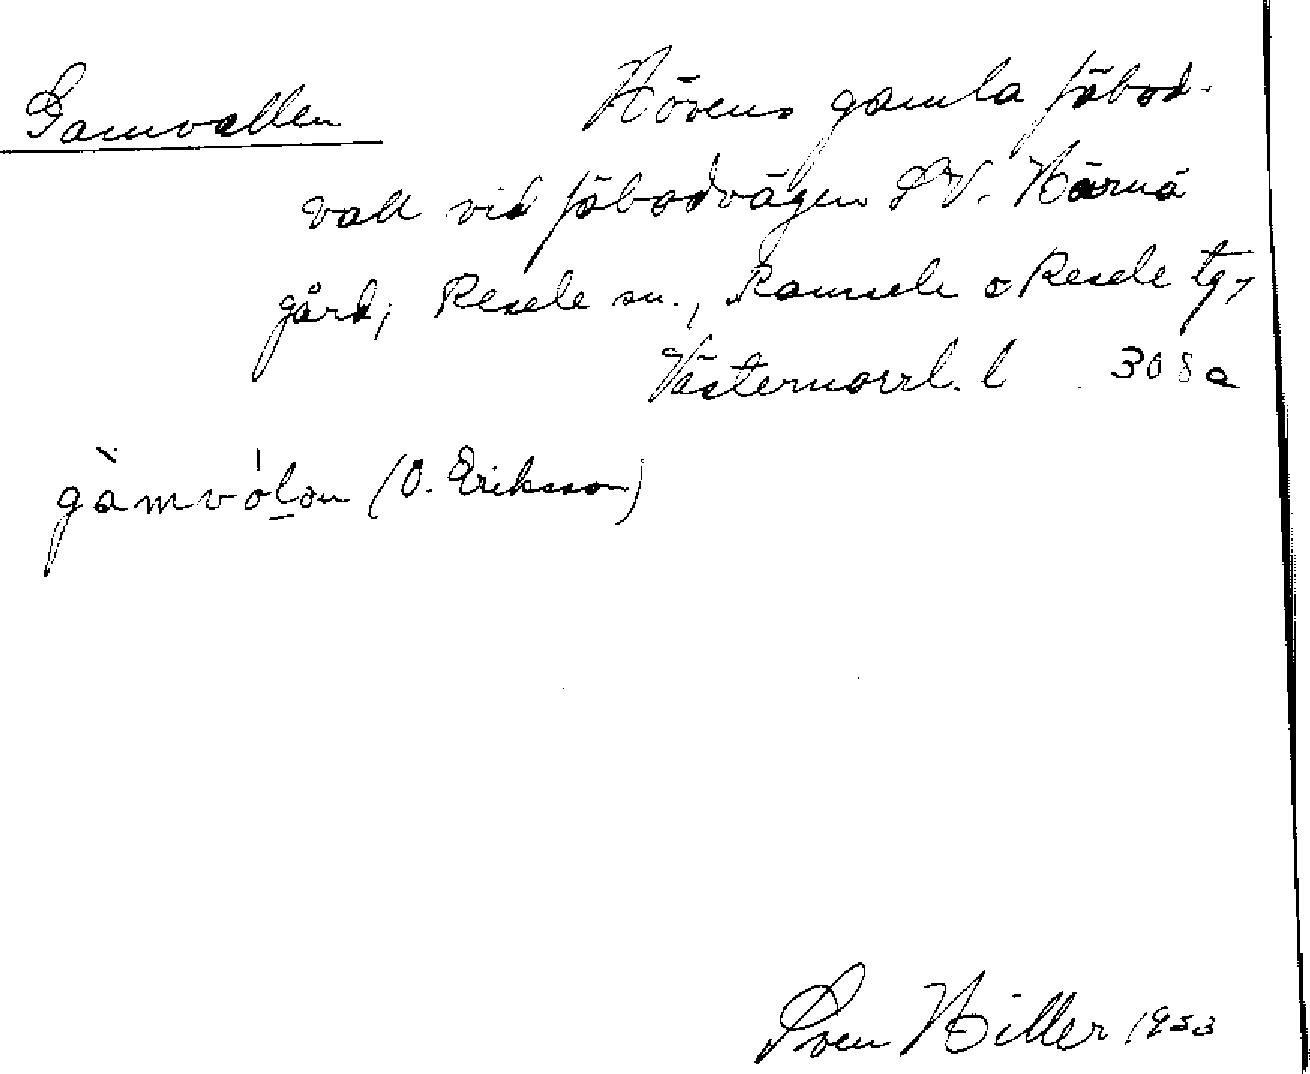 Gamvallen Hövens gamla fäbod-
vall vid fäbodvägen SV. Närnå
gård, Resele sn., Ramsele o Resele tg,
Västernorrl. l 308a
gàmvólən (O. Eriksson)
Sven Hiller 1933